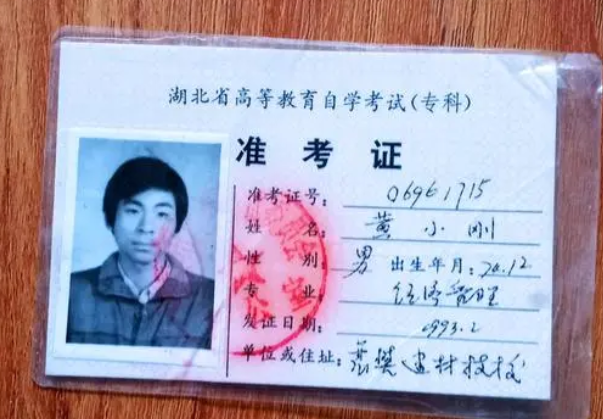 湖北省高等教育自学考试(专科)
准考证
准考证号: 06961715
姓名: 黄小刚
性别: 男 出生年月: 70.12
专业: 经济管理
发证日期: 1993.2
单位或住址: 襄樊建材技校